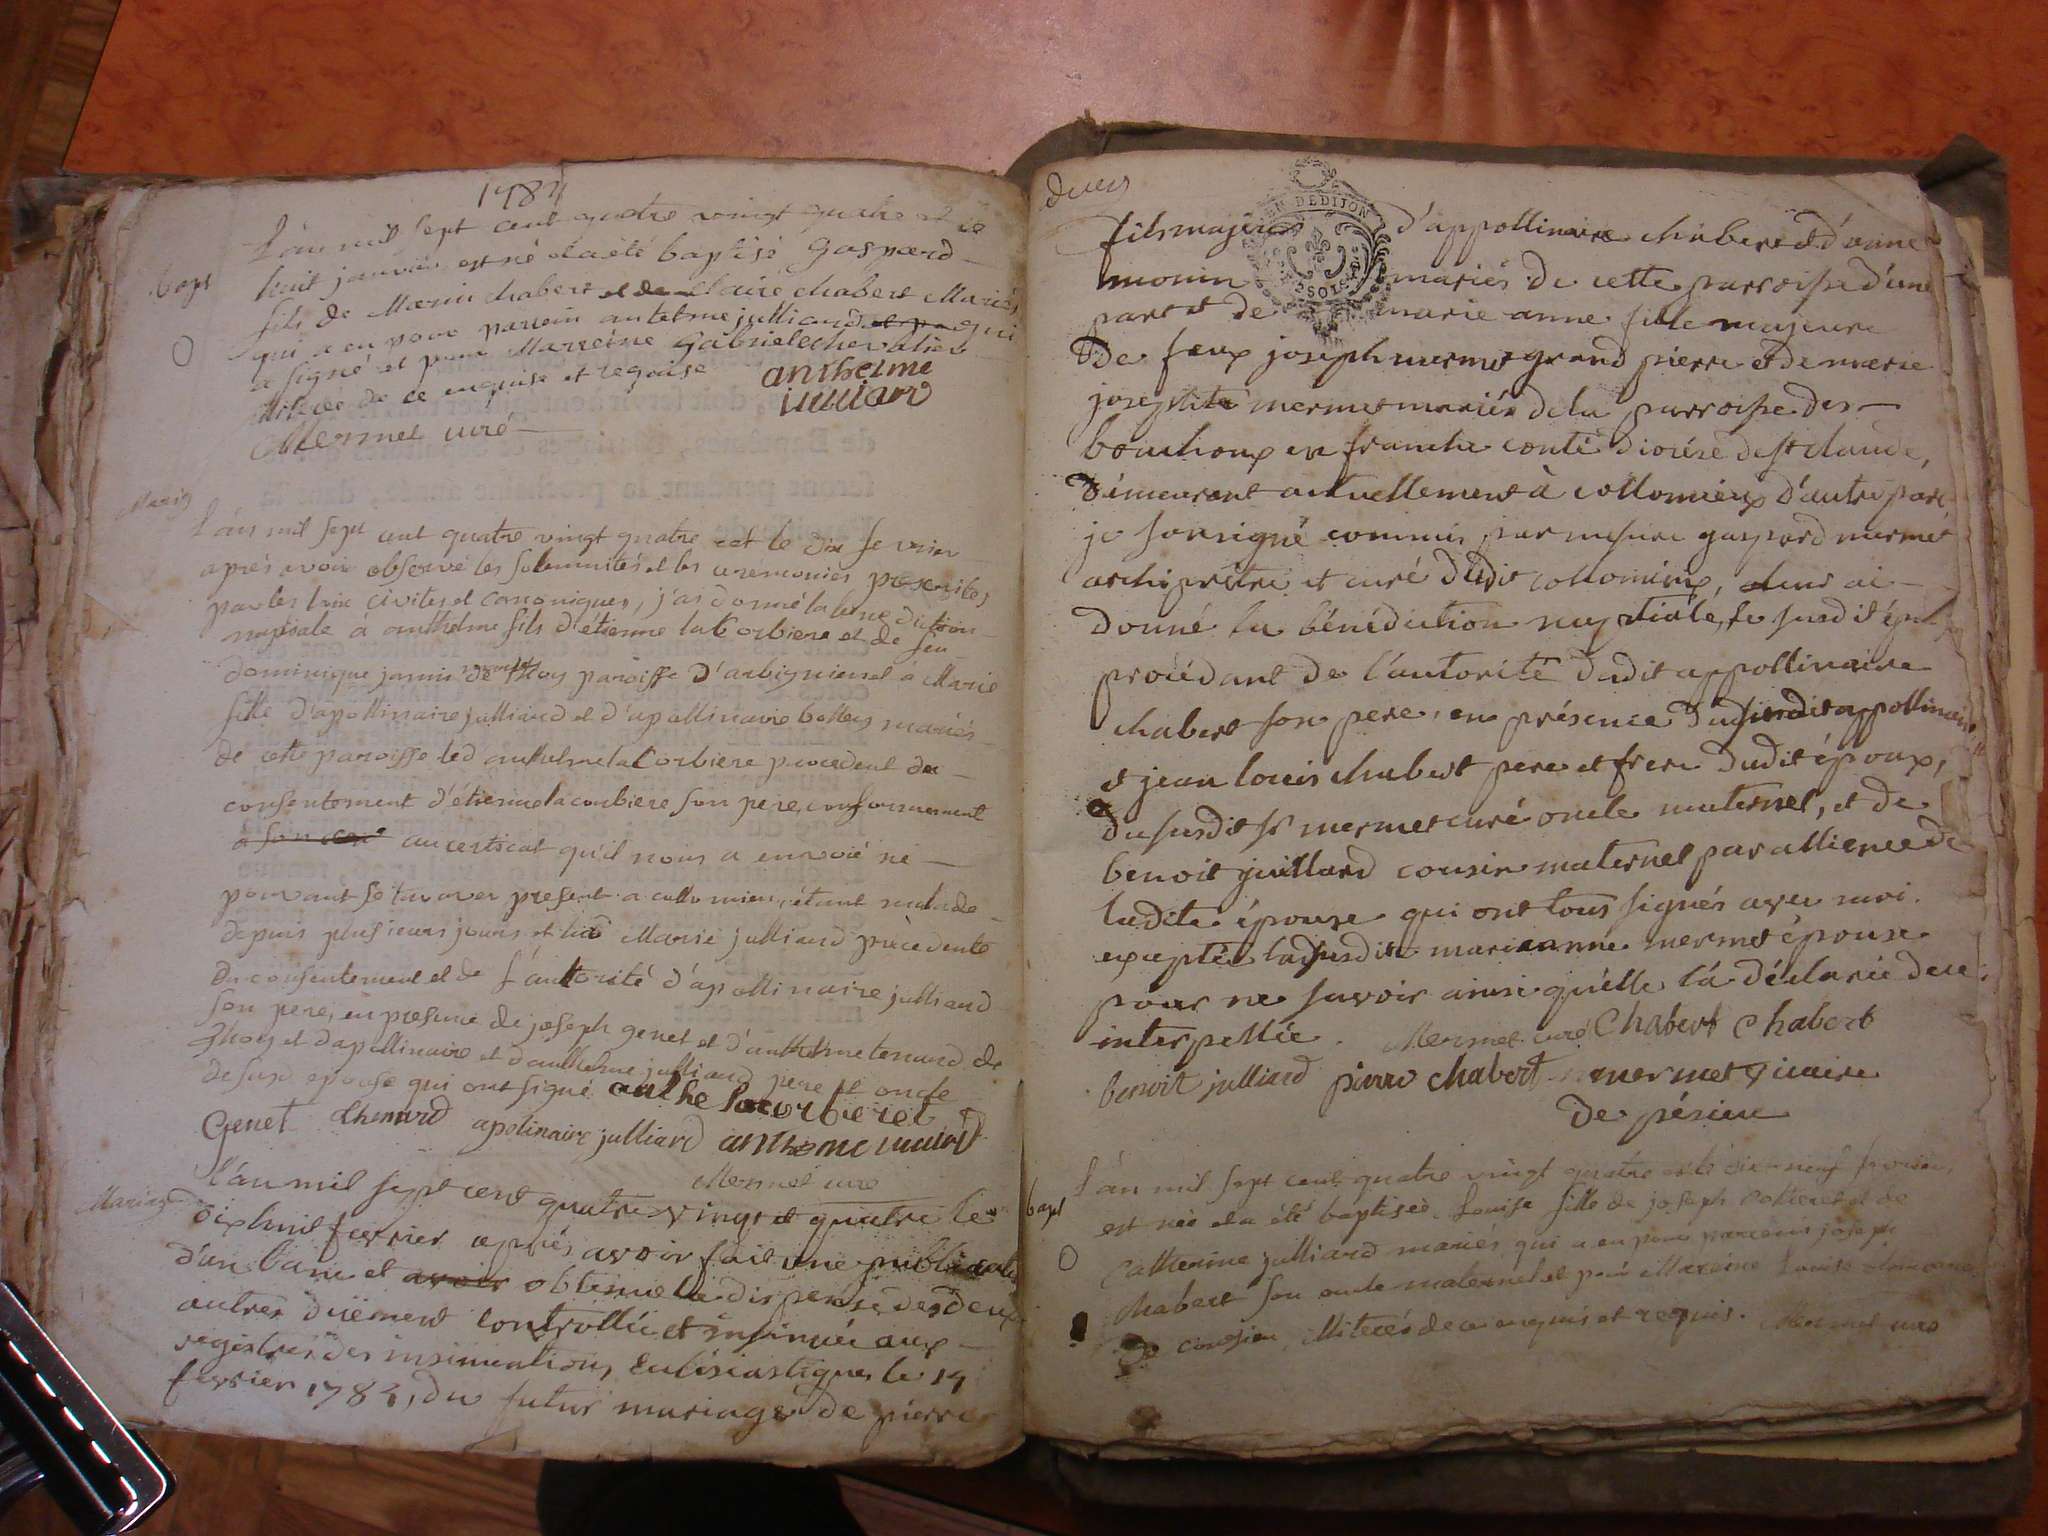 1784
L'an mil sept cent quatre vingt quatre et le
bapt
huit janvier est né et a été baptisé Gaspard
fils de Marin chabert et de Claire chabert Mariés
qui a eu pour parrein antelme julliard et pa qui
a signé et pour Marreine Gabriele chevalier
illiteree de ce enquise et requise
anthelme
julliard
Mermet curé
Mariag
L'an mil sept cent quatre vingt quatre et le dix fevrier
aprés avoir observé les solemnités et les ceremonies prescrites
par les loix civiles et canoniques, j'ai donné la benediction
nuptiale à anthelme fils d'étienne la Corbiere et de feu
dominique jamin de thoy paroisse d'arbignieu et à Marie
fille d'apollinaire julliard et d'apollinaire bolley mariés
de cette paroisse led anthelme la Corbiere procedent du
consentement d'étienne la corbiere son pere, conformement
à son cer au certificat qu'il nous a envoié ne
pouvant se trouver present a collomieu, étant malade
depuis plusieurs jours et lad Marie julliard procedente
du consentement et de l'autorité d'apollinaire julliard
son pere, en presence de joseph genet et d'anthelme tenard de
Thoy et d'apollinaire et d'anthelme julliard pere et oncle
de susd epouse qui ont signé anthe lacorbieret
Genet thenard apolinaire julliard anthelme juliard
Mermet curé
Mariage
L'an mil sept cent quatre vingt et quatre le
dix huit fevrier aprés avoir fait une publication
d'un banc et avoir obtenu la dispense des deux
autres düement controllée et insinuée aux
registres des insinuations Ecclésiastiques le 14
fevrier 1784, du futur mariage de pierre
deux
fils majeur d'appollinaire chabert et d'anne
monin mariés de cette parroisse d'une
part et de marie anne fille majeure
De feux joseph mermet grand pierre et de marie
josephte mermet mariés de la parroisse des
bouchoux en franche conté diocése de st claude,
démeurant actuellement à collomieux d'autre part
je soussigné commis par messire gaspard mermet
archiprêtre et curé dudit collomieux, leur ai
donné la bénédiction nuptiale, le susdit époux
procédant de l'autorité dudit appollinaire
chabert son pere, en présence dudit susdit appollinaire
et jean louis chabert pere et frere dudit époux,
du susdit sr mermet curé oncle maternel, et de
benoit juillard cousin maternel par allience de
ladite épouse qui ont tous signés avec moi
exceptée ladsusdite marie anne mermet épouse
pour ne savoir ainsi qu'elle l'a déclarée de ce
interpellée. Mermet curé Chabert Chabert
benoit julliard pierre chabert mermet vicaire
De pésieu
L'an mil sept cent quatre vingt quatre et le dix neuf fevrier,
bapt
est née et a été baptisée Louise fille de joseph et de
Catherine julliard mariés, qui a eu pour parrein joseph
chabert son oncle maternel et pour Marreine Louise
De illiterés de ce enquis et requis. Mermet curé
EN DE DIJON